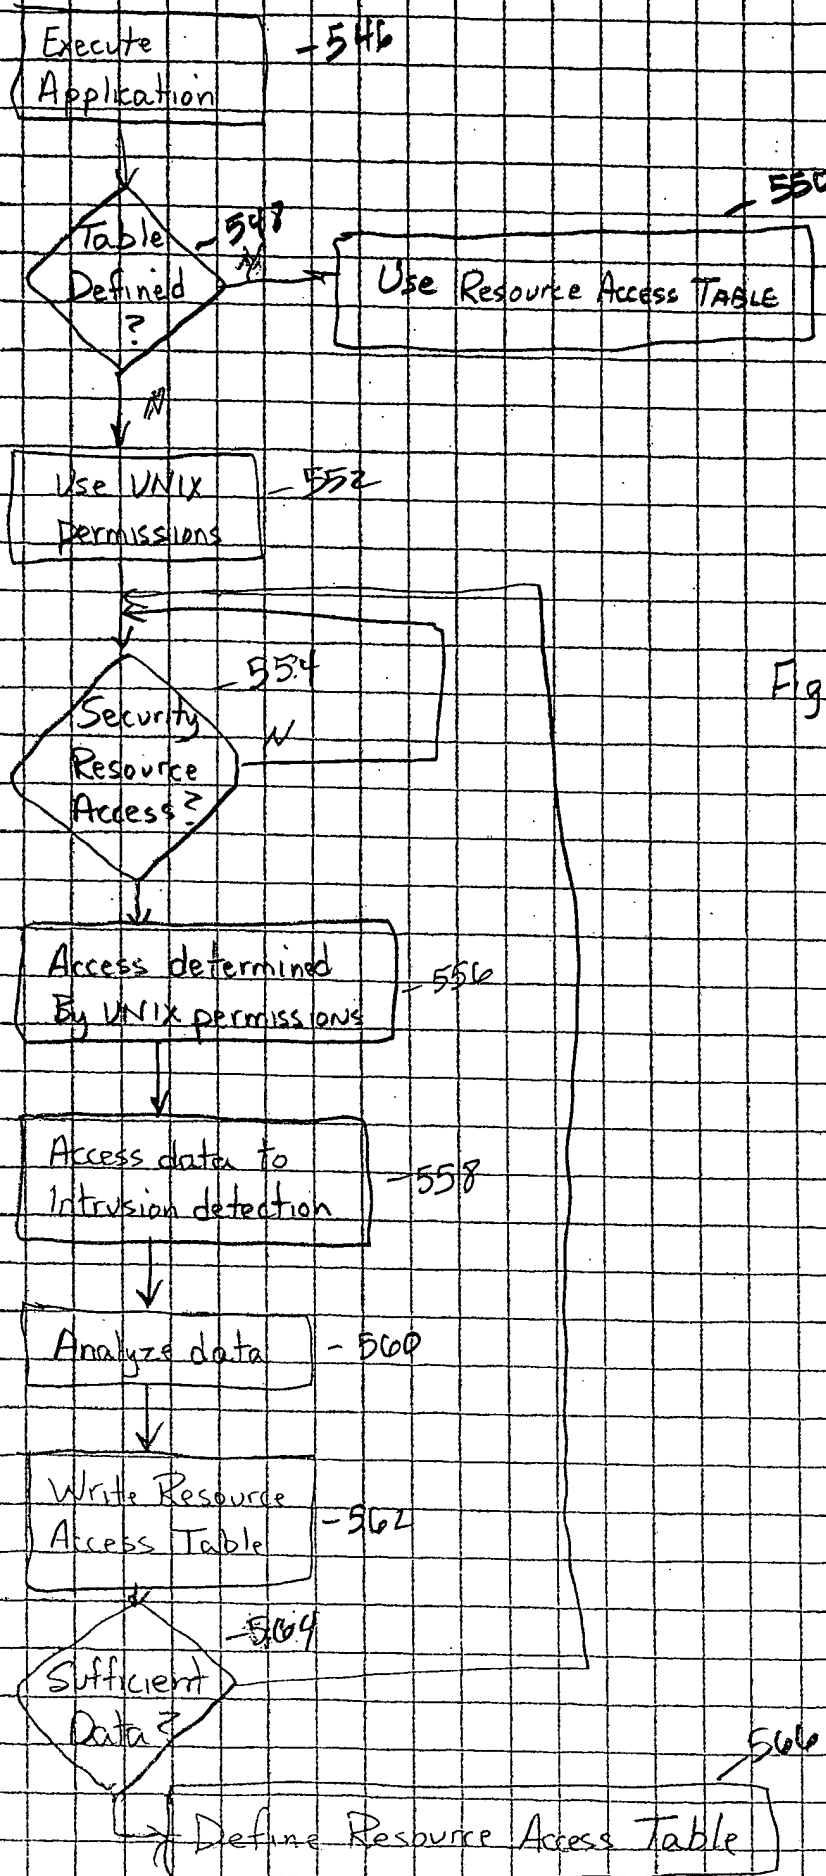 Execute
Application
-546
Table
Defined
?
-548
550
Use Resource Access TABLE
N
Use UNIX
permissions
-552
Security
Resource
Access?
-554
N
Fig
Access determined
By UNIX permissions
-556
Access data to
Intrusion detection
-558
Analyze data
-560
Write Resource
Access Table
-562
Sufficient
Data?
-564
566
Define Resource Access Table